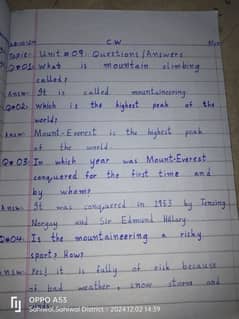 C.W
Topic: Unit # 09: Questions/Answers
Q#01: What is mountain climbing
called?
Ans: It is called mountaineering.
Q#02: Which is the highest peak of the
world?
Ans: Mount-Everest is the highest peak
of the world.
Q#03: In which year was Mount-Everest
conquered for the first time and
by whom?
Ans: It was conquered in 1953 by Tenzing
Norgay and Sir Edmund Hillary
Q#04: Is the mountaineering a risky
sport? How?
Ans: Yes! it is fully of risk because
of bad weather, snow storms and
OPPO A53
Sahiwal, Sahiwal District - 2024.12.02 14:39